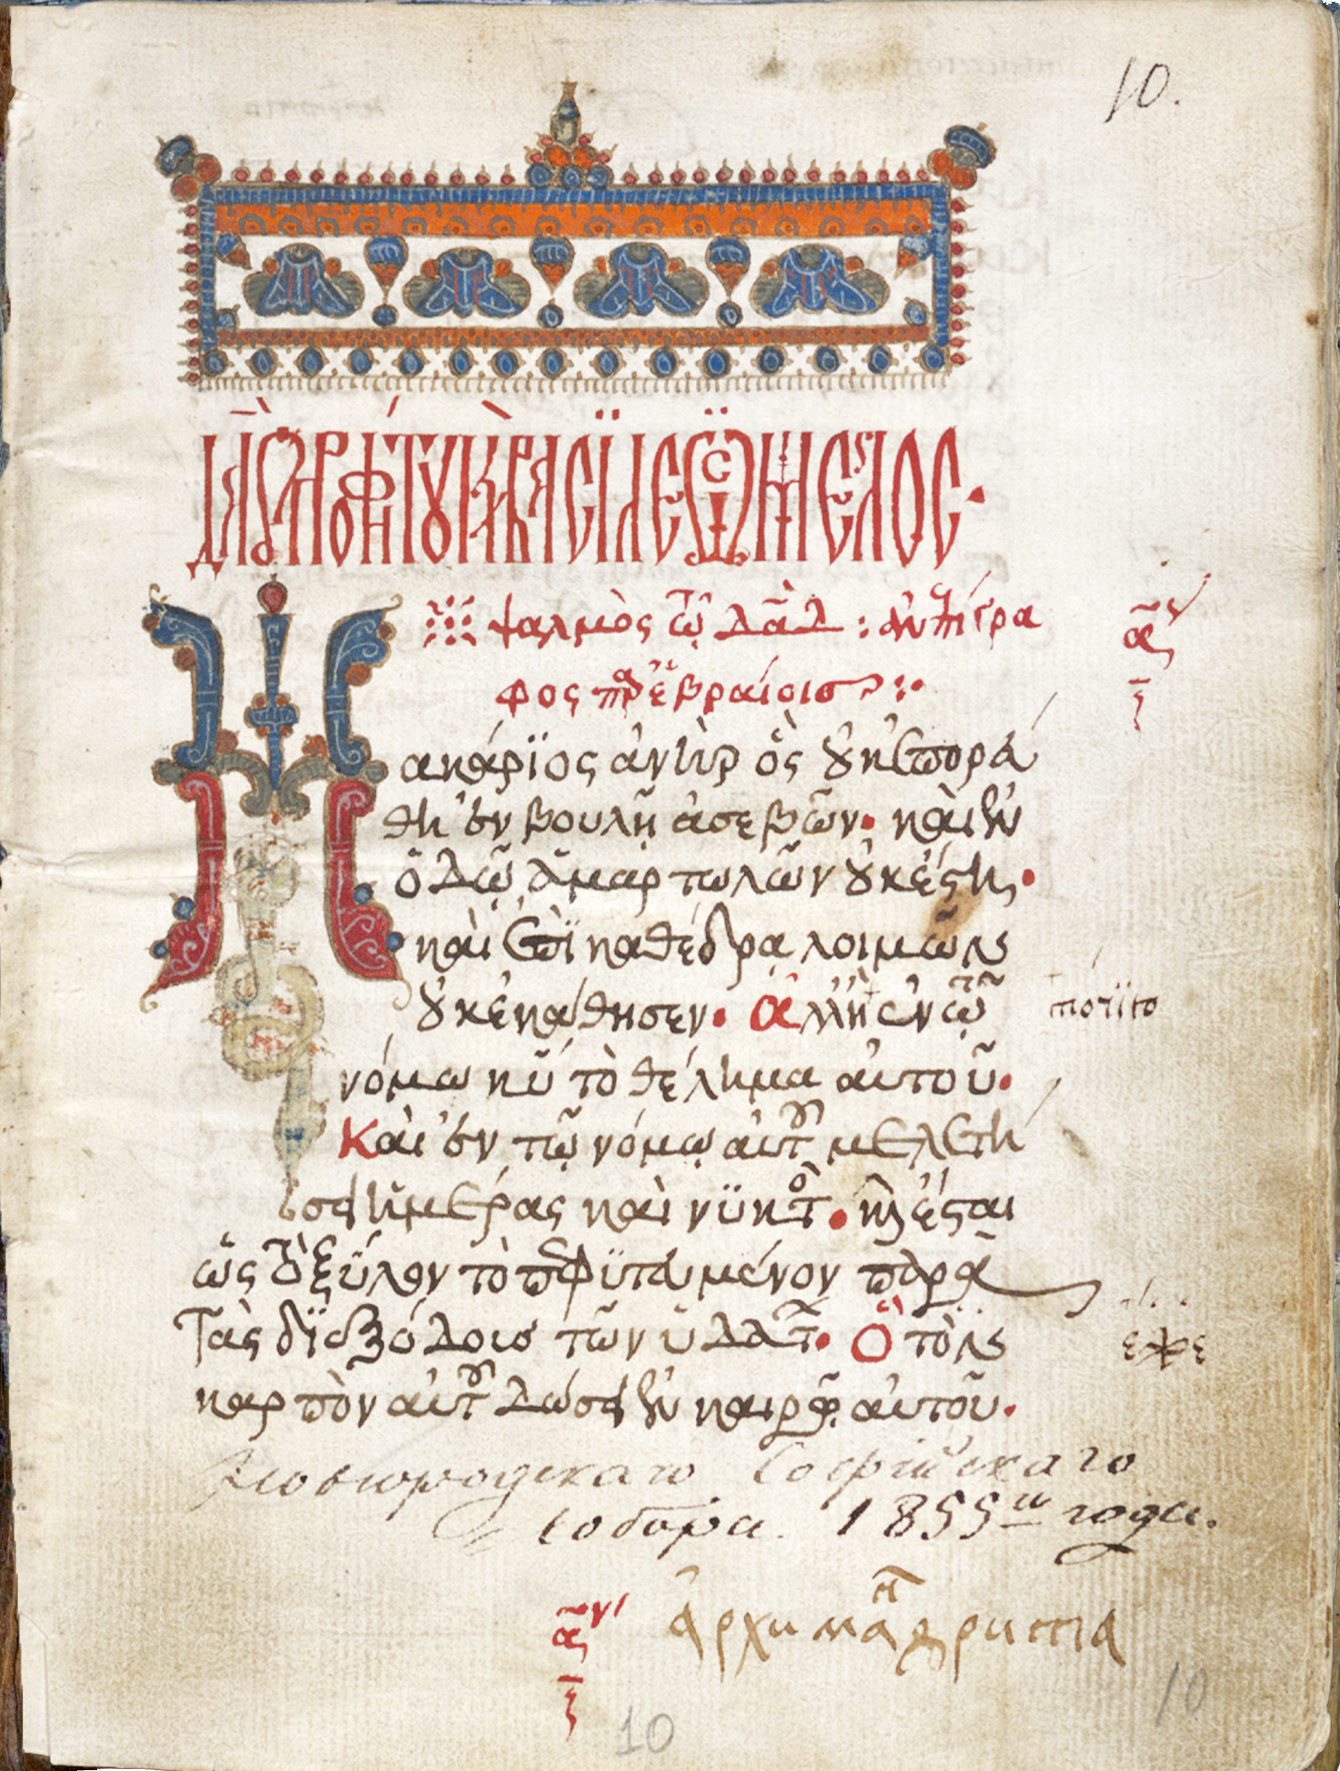 10.
ψαλμὸς τῷ δαδ : ἀνεπίγρα
φος παρ ἑβραίοις :·
Μακάριος ἀνὴρ ὃς οὐκ ἐπορεύ
θη ἐν βουλῇ ἀσεβῶν· καὶ ἐν
ὁδῷ ἁμαρτωλῶν οὐκ ἔστη·
καὶ ἐπὶ καθέδρᾳ λοιμῶν
οὐκ ἐκάθησεν· ἀλλ' ἢ ἐν τῷ
νόμω κυ τὸ θέλημα αὐτοῦ·
Καὶ ἐν τῷ νόμῳ αὐτοῦ μελετή
σει ἡμέρας καὶ νϋκτος· καὶ ἔσται
ὡς τὸ ξύλον τὸ πεφϋτευμένον παρὰ
τὰς διεξόδοις τῶν ὑδάτων· Ὃ τὸν
καρπὸν αὐτοῦ δώσει ἐν καιρῷ αὐτοῦ·
Новгородскаго Софійскаго
собора. 1855го года.
архимандрита
10
10